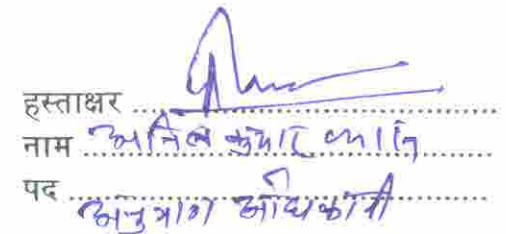 हस्ताक्षर
नाम अनिल कुमार
पद अनुभाग अधिकारी